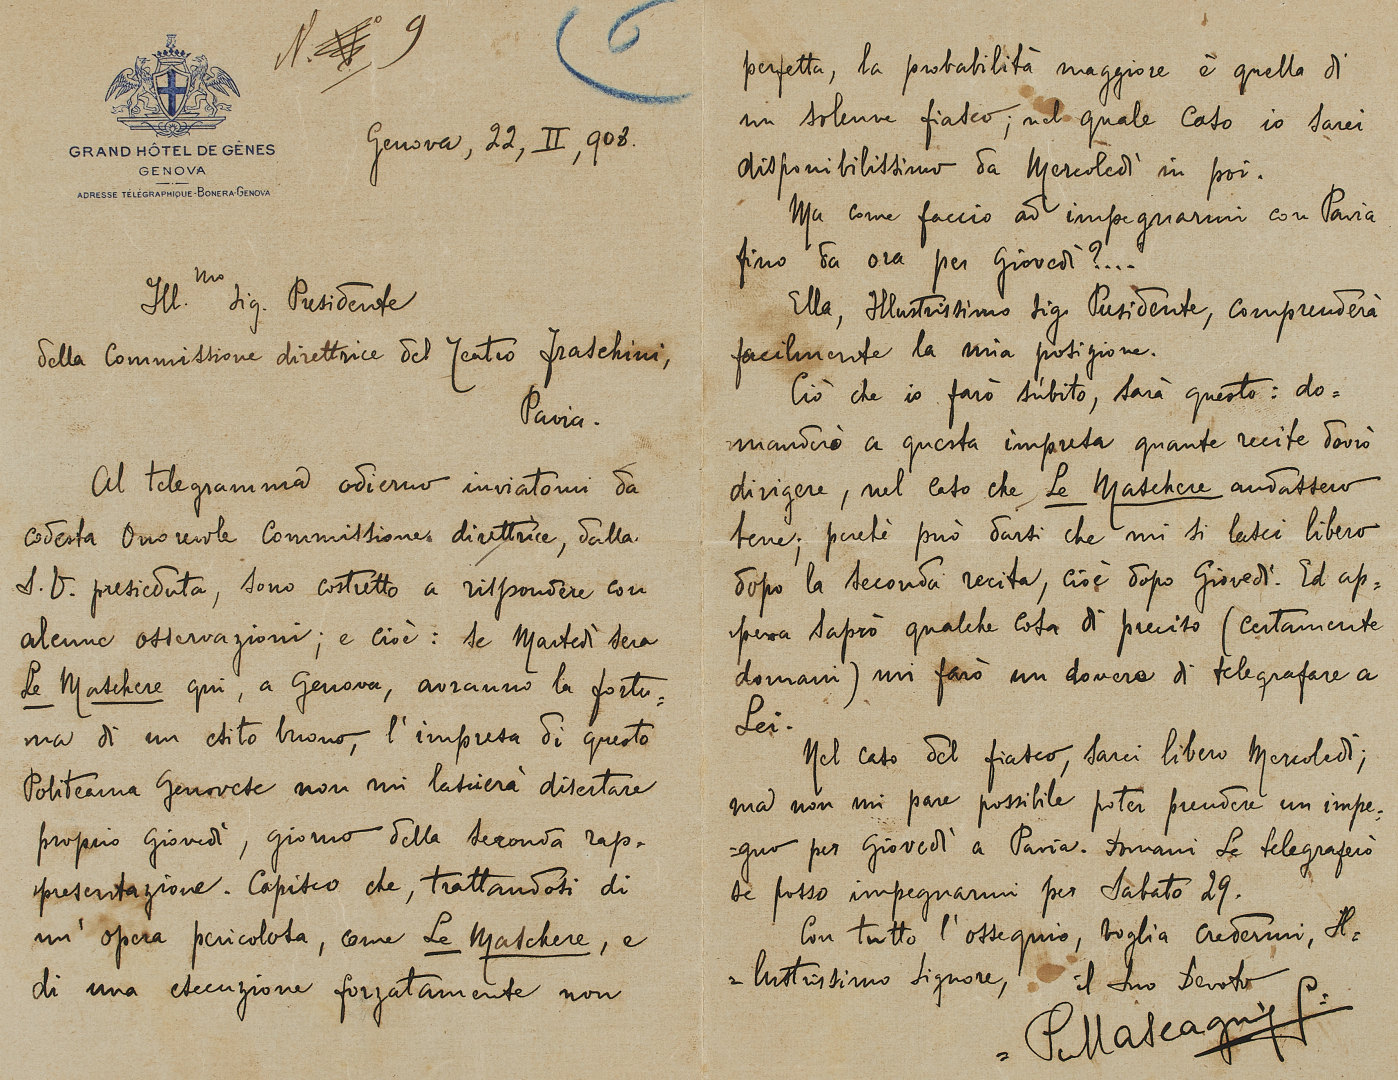 N. 9
6
GRAND HÔTEL DE GÊNES
GENOVA
ADRESSE TÉLÉGRAPHIQUE-BONERA-GENOVA
Genova, 22, II, 908.
Ill.mo Sig. Presidente
della Commissione direttrice del Teatro Fraschini,
Pavia.
Al telegramma odierno inviatomi da
codesta Onorevole Commissione direttrice, dalla
S. V. presieduta, sono costretto a rispondere con
alcune osservazioni; e cioè: se Martedì sera
Le Maschere qui, a Genova, avranno la fortu=
na di un esito buono, l'impresa di questo
Politeama Genovese non mi lascierà disertare
proprio Giovedì, giorno della seconda rap-
presentazione. Capisco che, trattandosi di
un' opera pericolosa, come Le Maschere, e
di una esecuzione forzatamente non
perfetta, la probabilità maggiore è quella di
un solenne fiasco; nel quale caso io sarei
disponibilissimo da Mercoledì in poi.
Ma come faccio ad impegnarmi con Pavia
fino da ora per Giovedì?....
Ella, Illustrissimo Sig. Presidente, comprenderà
facilmente la mia posizione.
Ciò che io farò sùbito, sarà questo: do=
manderò a questa impresa quante recite dovrò
dirigere, nel caso che Le Maschere andassero
bene; perchè può darsi che mi si lasci libero
dopo la seconda recita, cioè dopo Giovedì. Ed ap=
pena saprò qualche cosa di preciso (certamente
domani) mi farò un dovere di telegrafare a
Lei.
Nel caso del fiasco, sarei libero Mercoledì;
ma non mi pare possibile poter prendere un impe=
=gno per Giovedì a Pavia. Domani Le telegraferò
se posso impegnarmi per Sabato 29.
Con tutto l'ossequio, voglia credermi, Il=
=lustrissimo Signore, il Suo Devoto
= P. Mascagni =